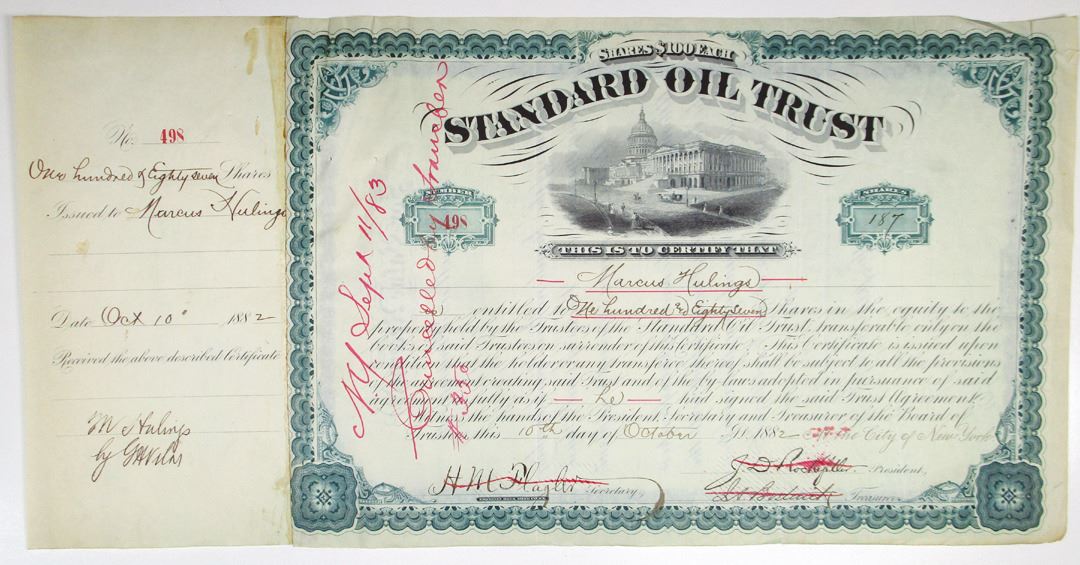 No. 498
One hundred & Eighty seven Shares
Issued to Marcus Hulings
Date Oct 10" 1882
Received the above described Certificate
M Hulings
by
SHARES $100 EACH
STANDARD OIL TRUST
NUMBER
498
SHARES
187
THIS IS TO CERTIFY THAT
Marcus Hulings
is entitled to One hundred & Eighty Seven Shares in the equity to the
property held by the Trustees of the Standard Oil Trust, transferable only on the
books of said Trustees on surrender of this Certificate. This Certificate is issued upon
condition that the holder or any transferee thereof shall be subject to all the provisions
of the agreement creating said Trust and of the by-laws adopted in pursuance of said
agreement as fully as if he had signed the said Trust Agreement.
Witness the hands of the President, Secretary and Treasurer of the Board of
Trustees this 10th day of October A.D. 1882 at the City of New York
H M Flagler Secretary,
J D Rockefeller President,
J. A. Bostwick Treasurer
NY Sept 11/83
Cancelled by transfer